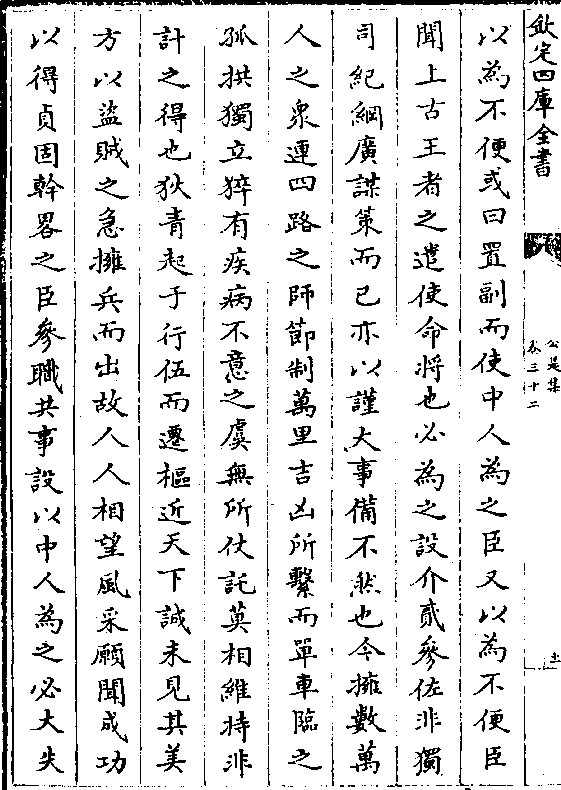 欽定四庫全書
公是集
卷三十二
以為不便或曰置副而使中人為之臣又以為不便臣
聞上古王者之遣使命將也必為之設介貳參佐非獨
司紀綱廣謀策而已亦以謹大事備不然也今擁數萬
人之衆連四路之師節制萬里吉凶所繫而單車臨之
孤拱獨立猝有疾病不意之虞無所仗託莫相維持非
計之得也狄青起于行伍而遷樞近天下誠未見其美
方以盜賊之急擁兵而出故人人相望風采願聞成功
以得貞固幹畧之臣參職共事設以中人為之必大失